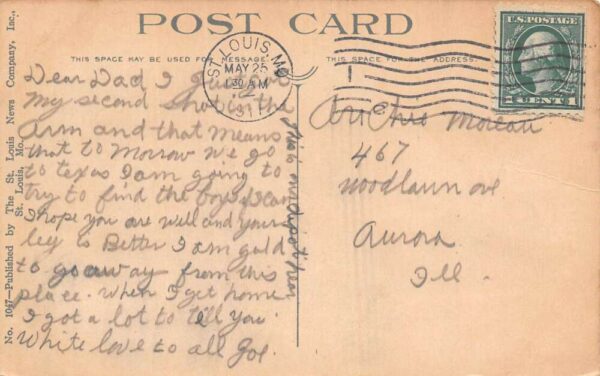 POST CARD
THIS SPACE MAY BE USED FOR MESSAGE.
THIS SPACE FOR THE ADDRESS.
No. 1047—Published by The St. Louis News Company, Inc.,
St. Louis, Mo.
ST. LOUIS, MO.
MAY 25
130 AM
U.S. POSTAGE
1 CENT 1
Dear Dad I just
my second shot in the
Arm and that means
that to Morrow we go
to texas I am going to
try to find the boys
I hope you are well and your
leg is Better I am gald
to go away from this
place. When I get home
I got a lot to tell you.
White love to all Joe.
Archie Moreau
467
Woodlawn ave
Aurora
Ill.